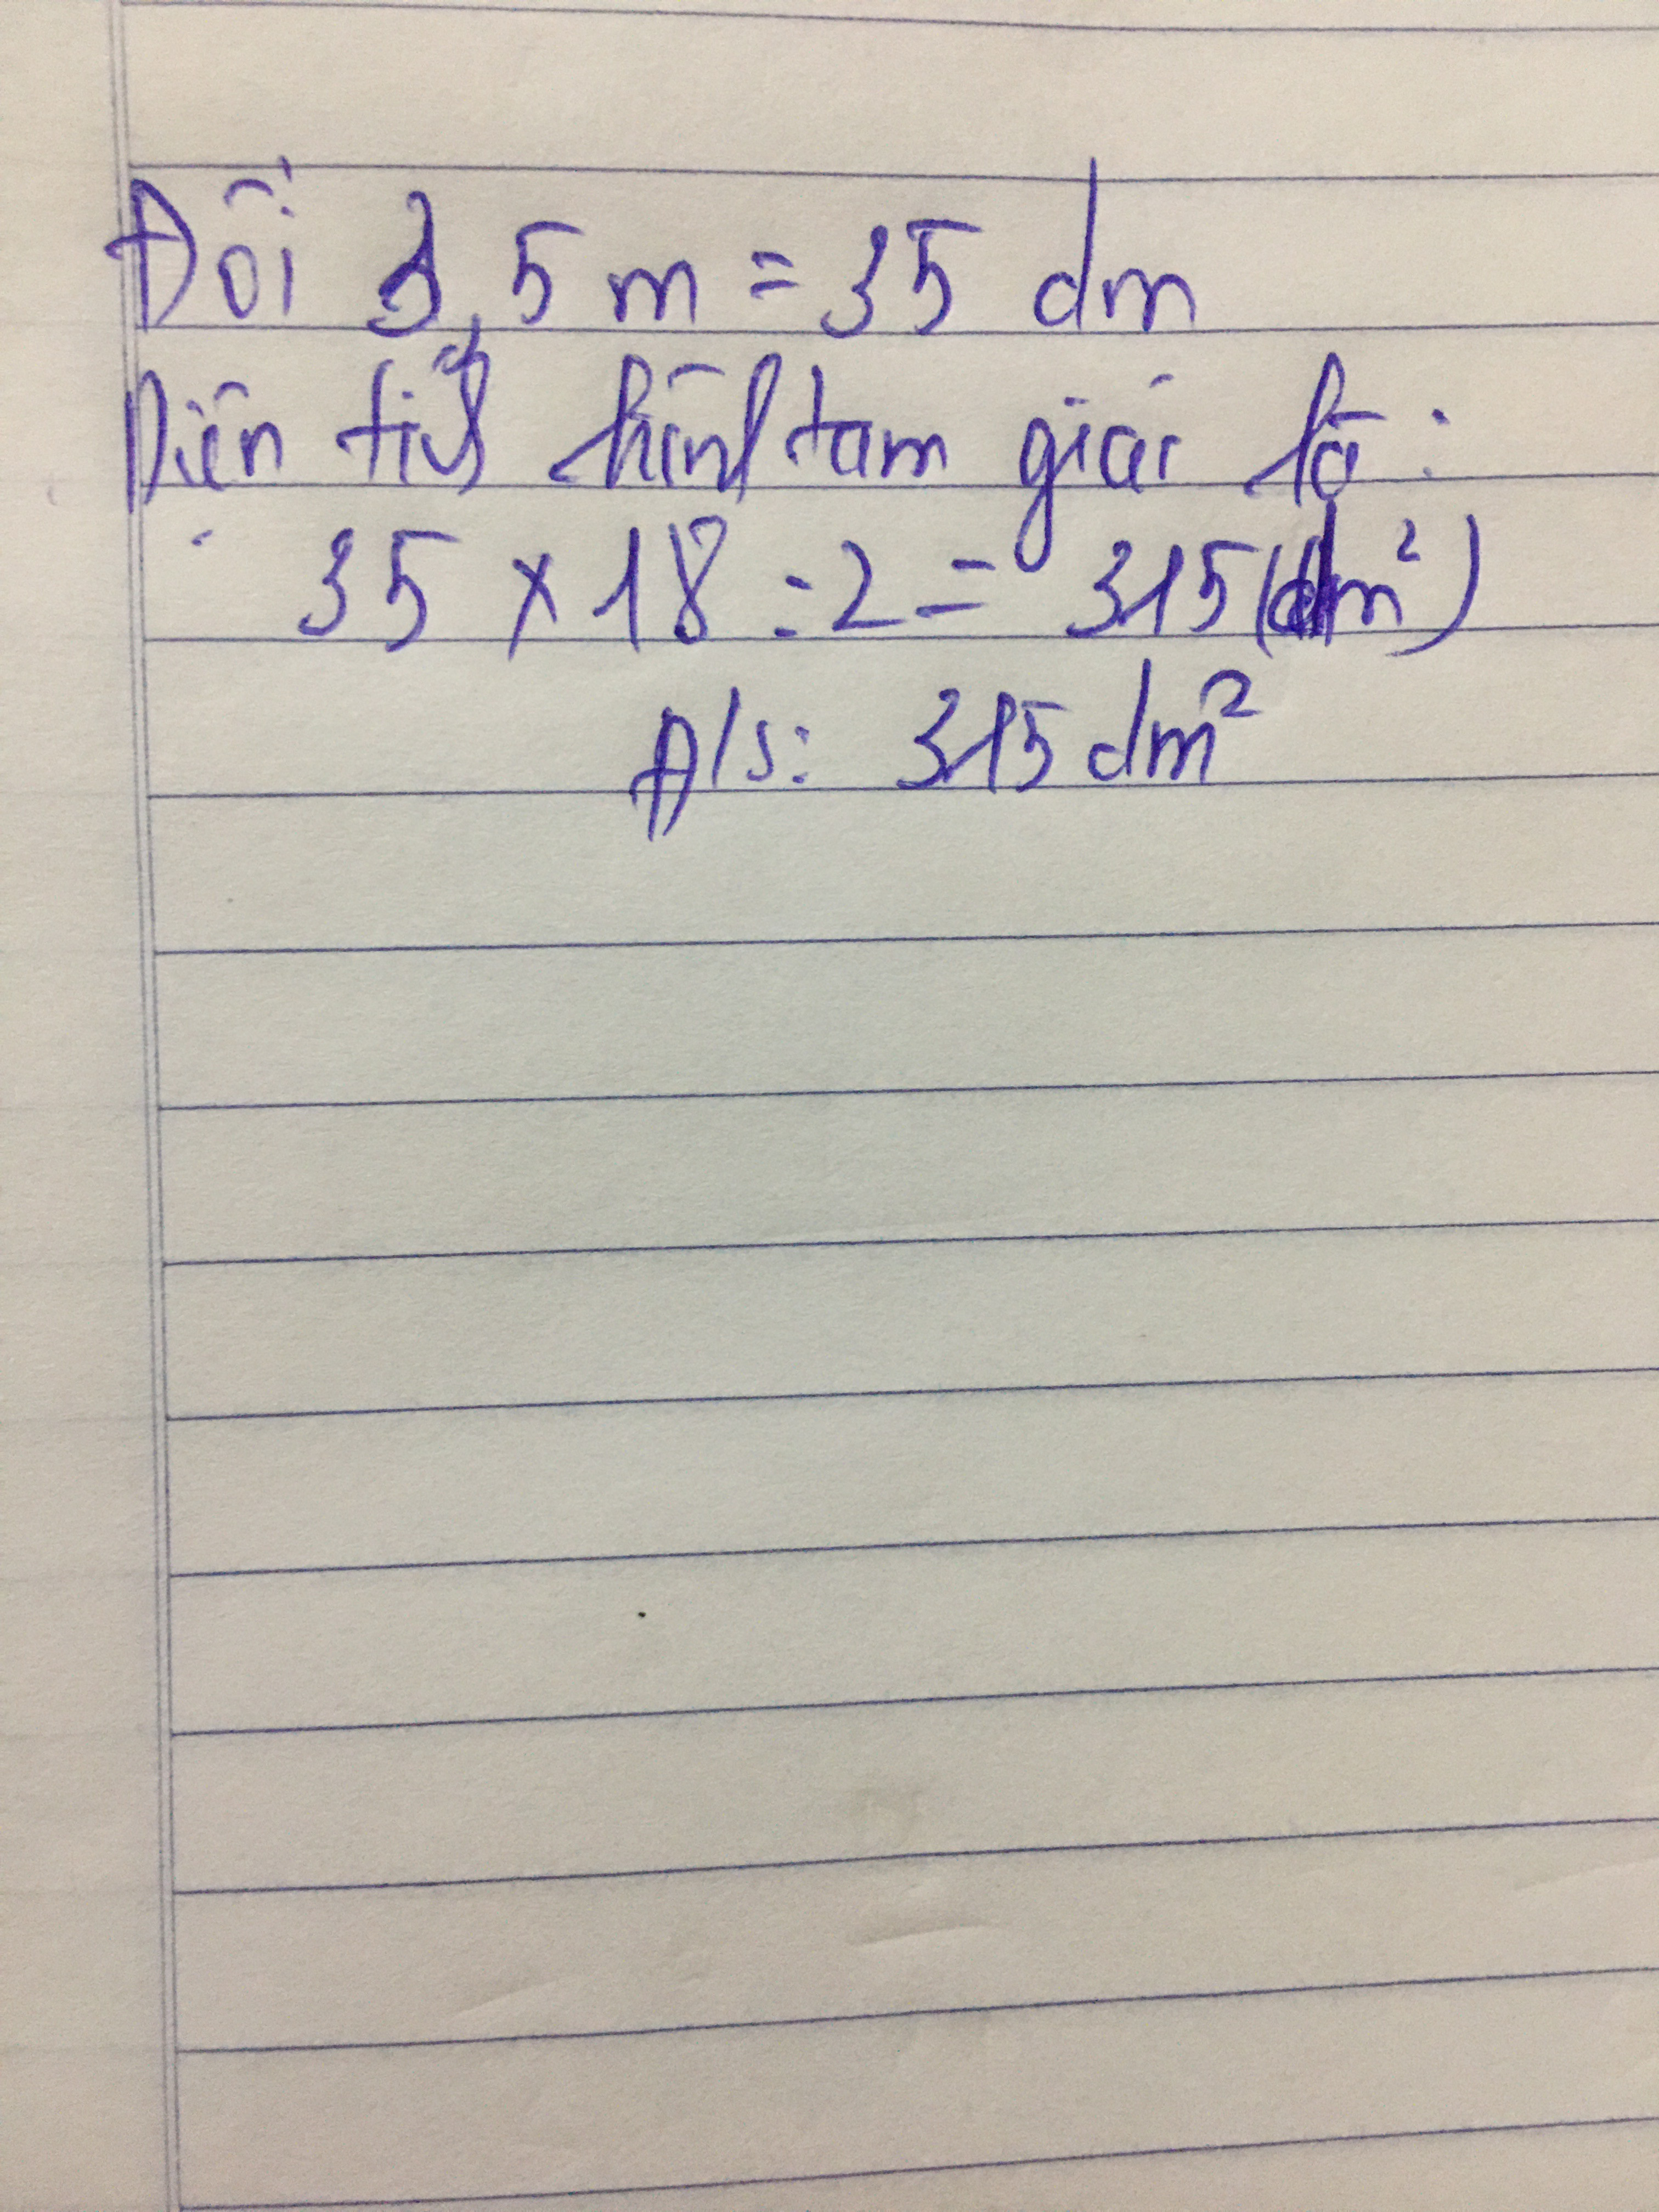 Đổi 3,5 m = 35 dm
Diện tích hình tam giác là:
35 x 18 : 2 = 315 (dm²)
Đ/s: 315 dm²